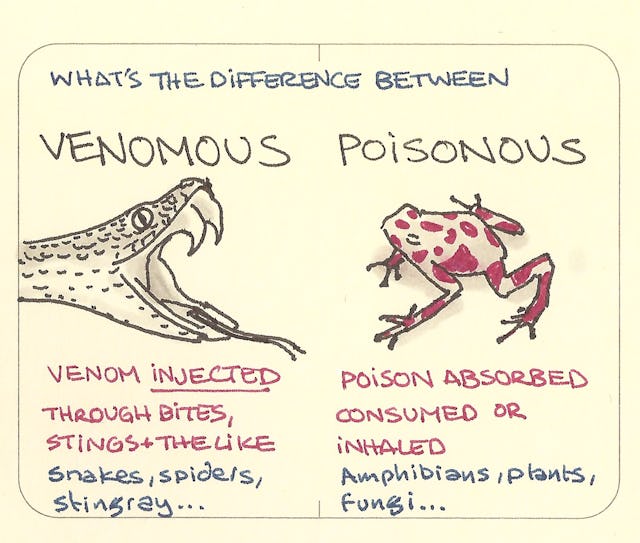 WHAT'S THE DIFFERENCE BETWEEN
VENOMOUS
VENOM INJECTED
THROUGH BITES,
STINGS + THE LIKE
Snakes, spiders,
stingray...
POISONOUS
POISON ABSORBED
CONSUMED OR
INHALED
Amphibians, plants,
fungi...